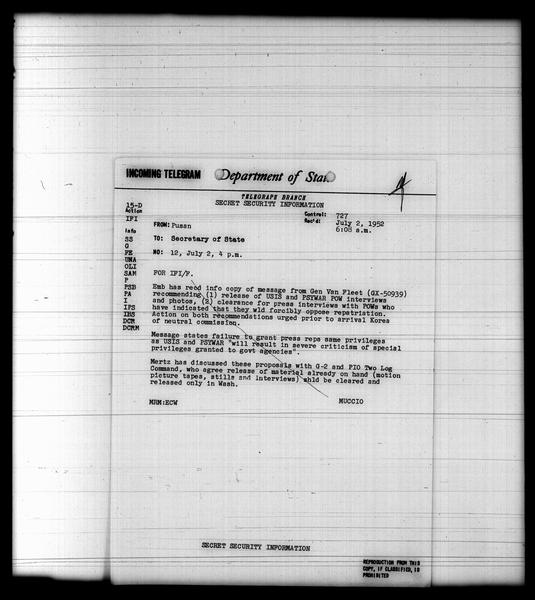 INCOMING TELEGRAM Department of State
TELEGRAPH BRANCH
SECRET SECURITY INFORMATION
15-D
Action
IFI
Info
SS
G
FE
UNA
OLI
SAM
P
PSB
PA
I
IPS
IBS
DCR
DCRM
Control: 727
Rec'd: July 2, 1952
6:08 a.m.
FROM: Pusan
TO: Secretary of State
NO: 12, July 2, 4 p.m.
FOR IFI/F.
Emb has read info copy of message from Gen Van Fleet (GX-50939)
recommending (1) release of USIS and PSYWAR POW interviews
and photos, (2) clearance for press interviews with POWs who
have indicated that they wld forcibly oppose repatriation.
Action on both recommendations urged prior to arrival Korea
of neutral commission.
Message states failure to grant press reps same privileges
as USIS and PSYWAR "will result in severe criticism of special
privileges granted to govt agencies".
Mertz has discussed these proposals with G-2 and PIO Two Log
Command, who agree release of material already on hand (motion
picture tapes, stills and interviews) shld be cleared and
released only in Wash.
MRM:ECW MUCCIO
SECRET SECURITY INFORMATION
REPRODUCTION FROM THIS
COPY, IF CLASSIFIED, IS
PROHIBITED